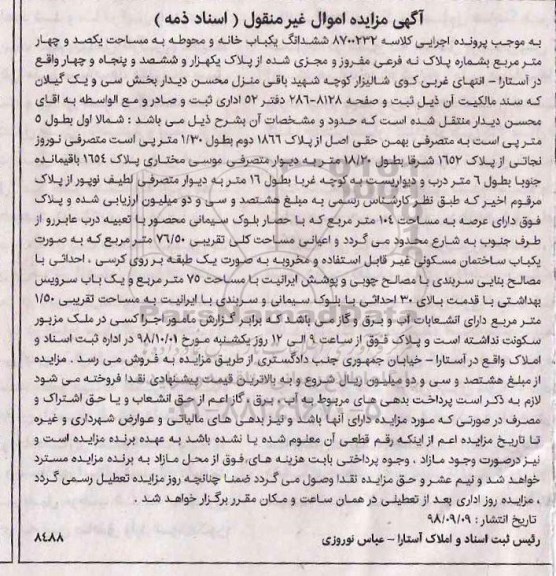 آگهی مزایده اموال غیر منقول ( اسناد ذمه )
به موجب پرونده اجرایی کلاسه ۸۷۰۰۲۳۲ ششدانگ یکباب خانه و محوطه به مساحت یکصد و چهار
متر مربع بشماره پلاک نه فرعی مفروز و مجزی شده از پلاک یکهزار و ششصد و پنجاه و چهار واقع
در آستارا – انتهای غربی کوی شالیزار کوچه شهید باقی منزل محسن دیدار بخش سی و یک گیلان
که سند مالکیت آن ذیل ثبت و صفحه ۸۱۲۸-۲۸۶ دفتر ۵۲ اداری ثبت و صادر و مع الواسطه به اقای
محسن دیدار منتقل شده است که حدود و مشخصات آن بشرح ذیل می باشد : شمالا اول بطول ۵
متر پی است به متصرفی بهمن حقی اصل از پلاک ۱۸۶۶ دوم بطول ۱/۳۰ متر پی است متصرفی نوروز
نجاتی از پلاک ۱۶۵۲ شرقا بطول ۱۸/۲۰ متر به دیوار متصرفی موسی مختاری پلاک ۱۶۵۴ باقیمانده
جنوبا بطول ۶ متر درب و دیواریست به کوچه غربا بطول ۱۶ متر به دیوار متصرفی لطیف نوپور از پلاک
مرقوم اخیر که طبق نظر کارشناس رسمی به مبلغ هشتصد و سی و دو میلیون ارزیابی شده و پلاک
فوق دارای عرصه به مساحت ۱۰۴ متر مربع که با حصار بلوک سیمانی محصور با تعبیه درب عابررو از
طرف جنوب به شارع محدود می گردد و اعیانی مساحت کلی تقریبی ۷۶/۵۰ متر مربع که به صورت
یکباب ساختمان مسکونی غیر قابل استفاده و مخروبه به صورت یک طبقه بر روی کرسی ، احداثی با
مصالح بنایی سربندی با مصالح چوبی و پوشش ایرانیت با مساحت ۷۵ متر مربع و یک باب سرویس
بهداشتی با قدمت بالای ۳۰ احداثی با بلوک سیمانی و سربندی با ایرانیت به مساحت تقریبی ۱/۵۰
متر مربع دارای انشعابات آب و برق و گاز می باشد که برابر گزارش مامور اجرا کسی در ملک مزبور
سکونت نداشته است و پلاک فوق از ساعت ۹ الی ۱۲ روز یکشنبه مورخ ۹۸/۱۰/۰۱ در اداره ثبت اسناد و
املاک واقع در آستارا – خیابان جمهوری جنب دادگستری از طریق مزایده به فروش می رسد . مزایده
از مبلغ هشتصد و سی و دو میلیون ریال شروع و به بالاترین قیمت پیشنهادی نقدا فروخته می شود
لازم به ذکر است پرداخت بدهی های مربوط به آب، برق ، گاز اعم از حق انشعاب و یا حق اشتراک و
مصرف در صورتی که مورد مزایده دارای آنها باشد و نیز بدهی های مالیاتی و عوارض شهرداری و غیره
تا تاریخ مزایده اعم از اینکه رقم قطعی آن معلوم شده یا نشده باشد به عهده برنده مزایده است و
نیز درصورت وجود مازاد ، وجوه پرداختی بابت هزینه های فوق از محل مازاد به برنده مزایده مسترد
خواهد شد و نیم عشر و حق مزایده نقدا وصول می گردد ضمنا چنانچه روز مزایده تعطیل رسمی گردد
، مزایده روز اداری بعد از تعطیلی در همان ساعت و مکان مقرر برگزار خواهد شد .
تاریخ انتشار : ۹۸/۰۹/۰۹
رئیس ثبت اسناد و املاک آستارا – عباس نوروزی
۸۴۸۸